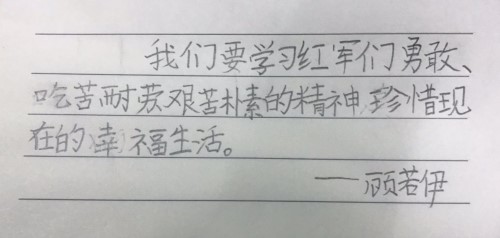 我们要学习红军们勇敢、
吃苦耐劳艰苦朴素的精神,珍惜现
在的幸福生活。
——顾若伊